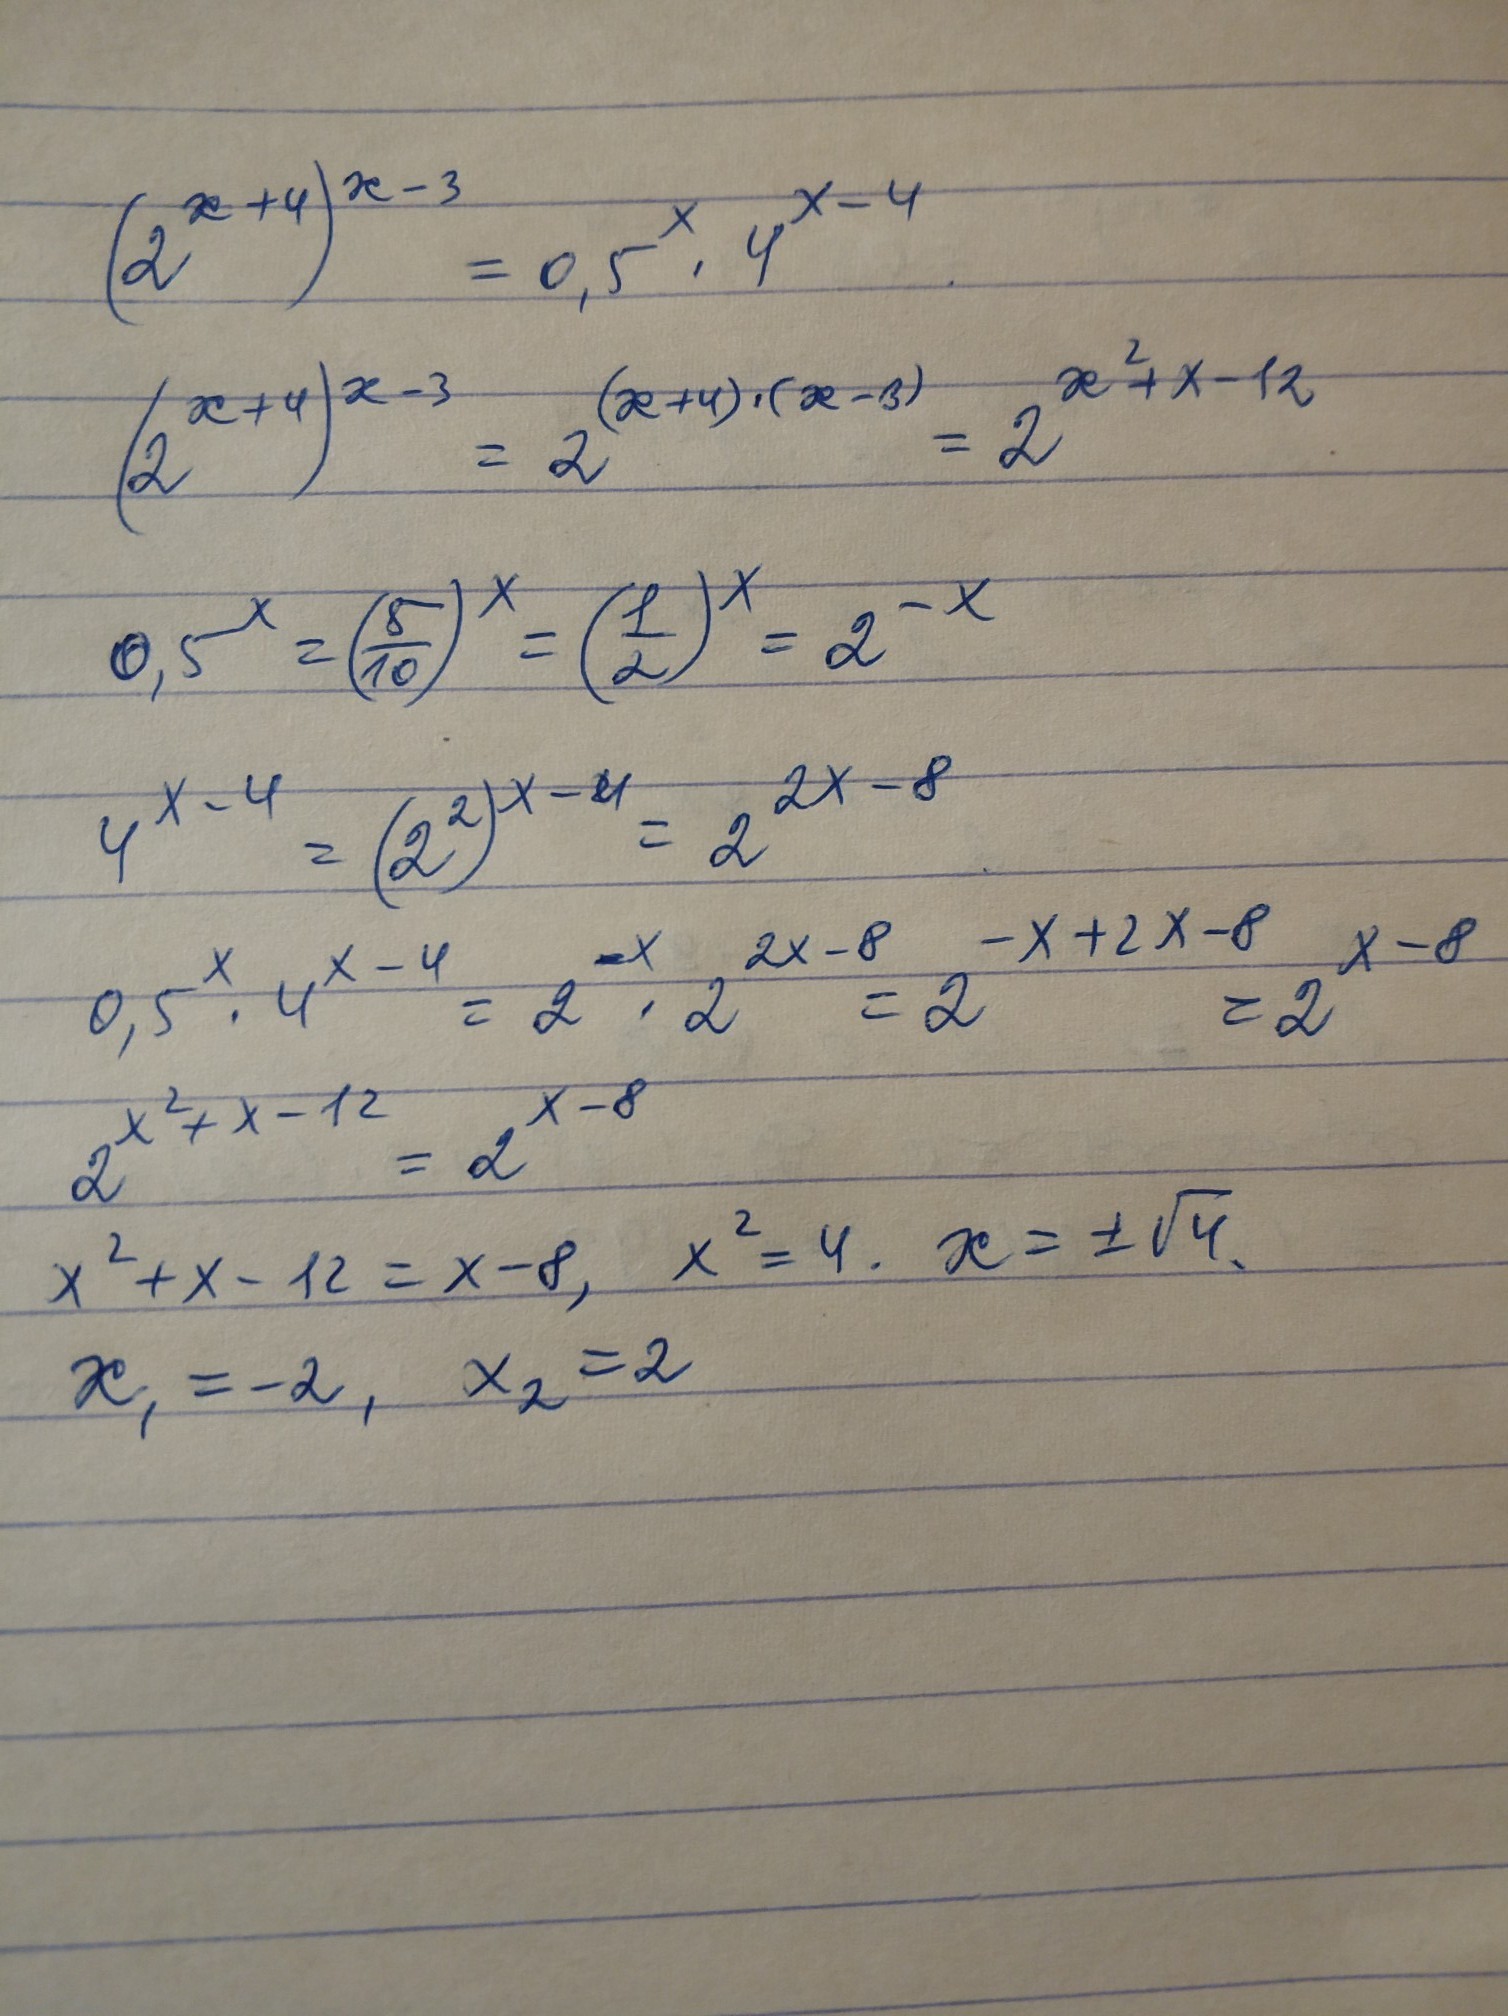 (2^(x+4))^(x-3) = 0,5^x · 4^(x-4)
(2^(x+4))^(x-3) = 2^((x+4)·(x-3)) = 2^(x²+x-12)
0,5^x = (5/10)^x = (1/2)^x = 2^(-x)
4^(x-4) = (2²)^(x-4) = 2^(2x-8)
0,5^x · 4^(x-4) = 2^(-x) · 2^(2x-8) = 2^(-x+2x-8) = 2^(x-8)
2^(x²+x-12) = 2^(x-8)
x²+x-12 = x-8, x² = 4. x = ±√4.
x₁ = -2, x₂ = 2